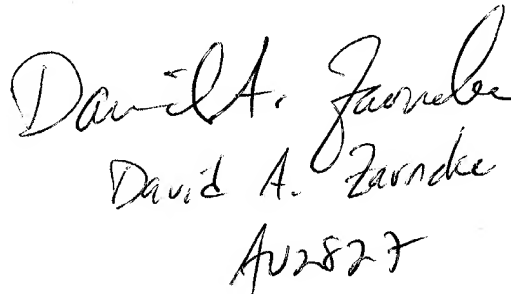 David A. Zarncke
David A. Zarncke
AU2827